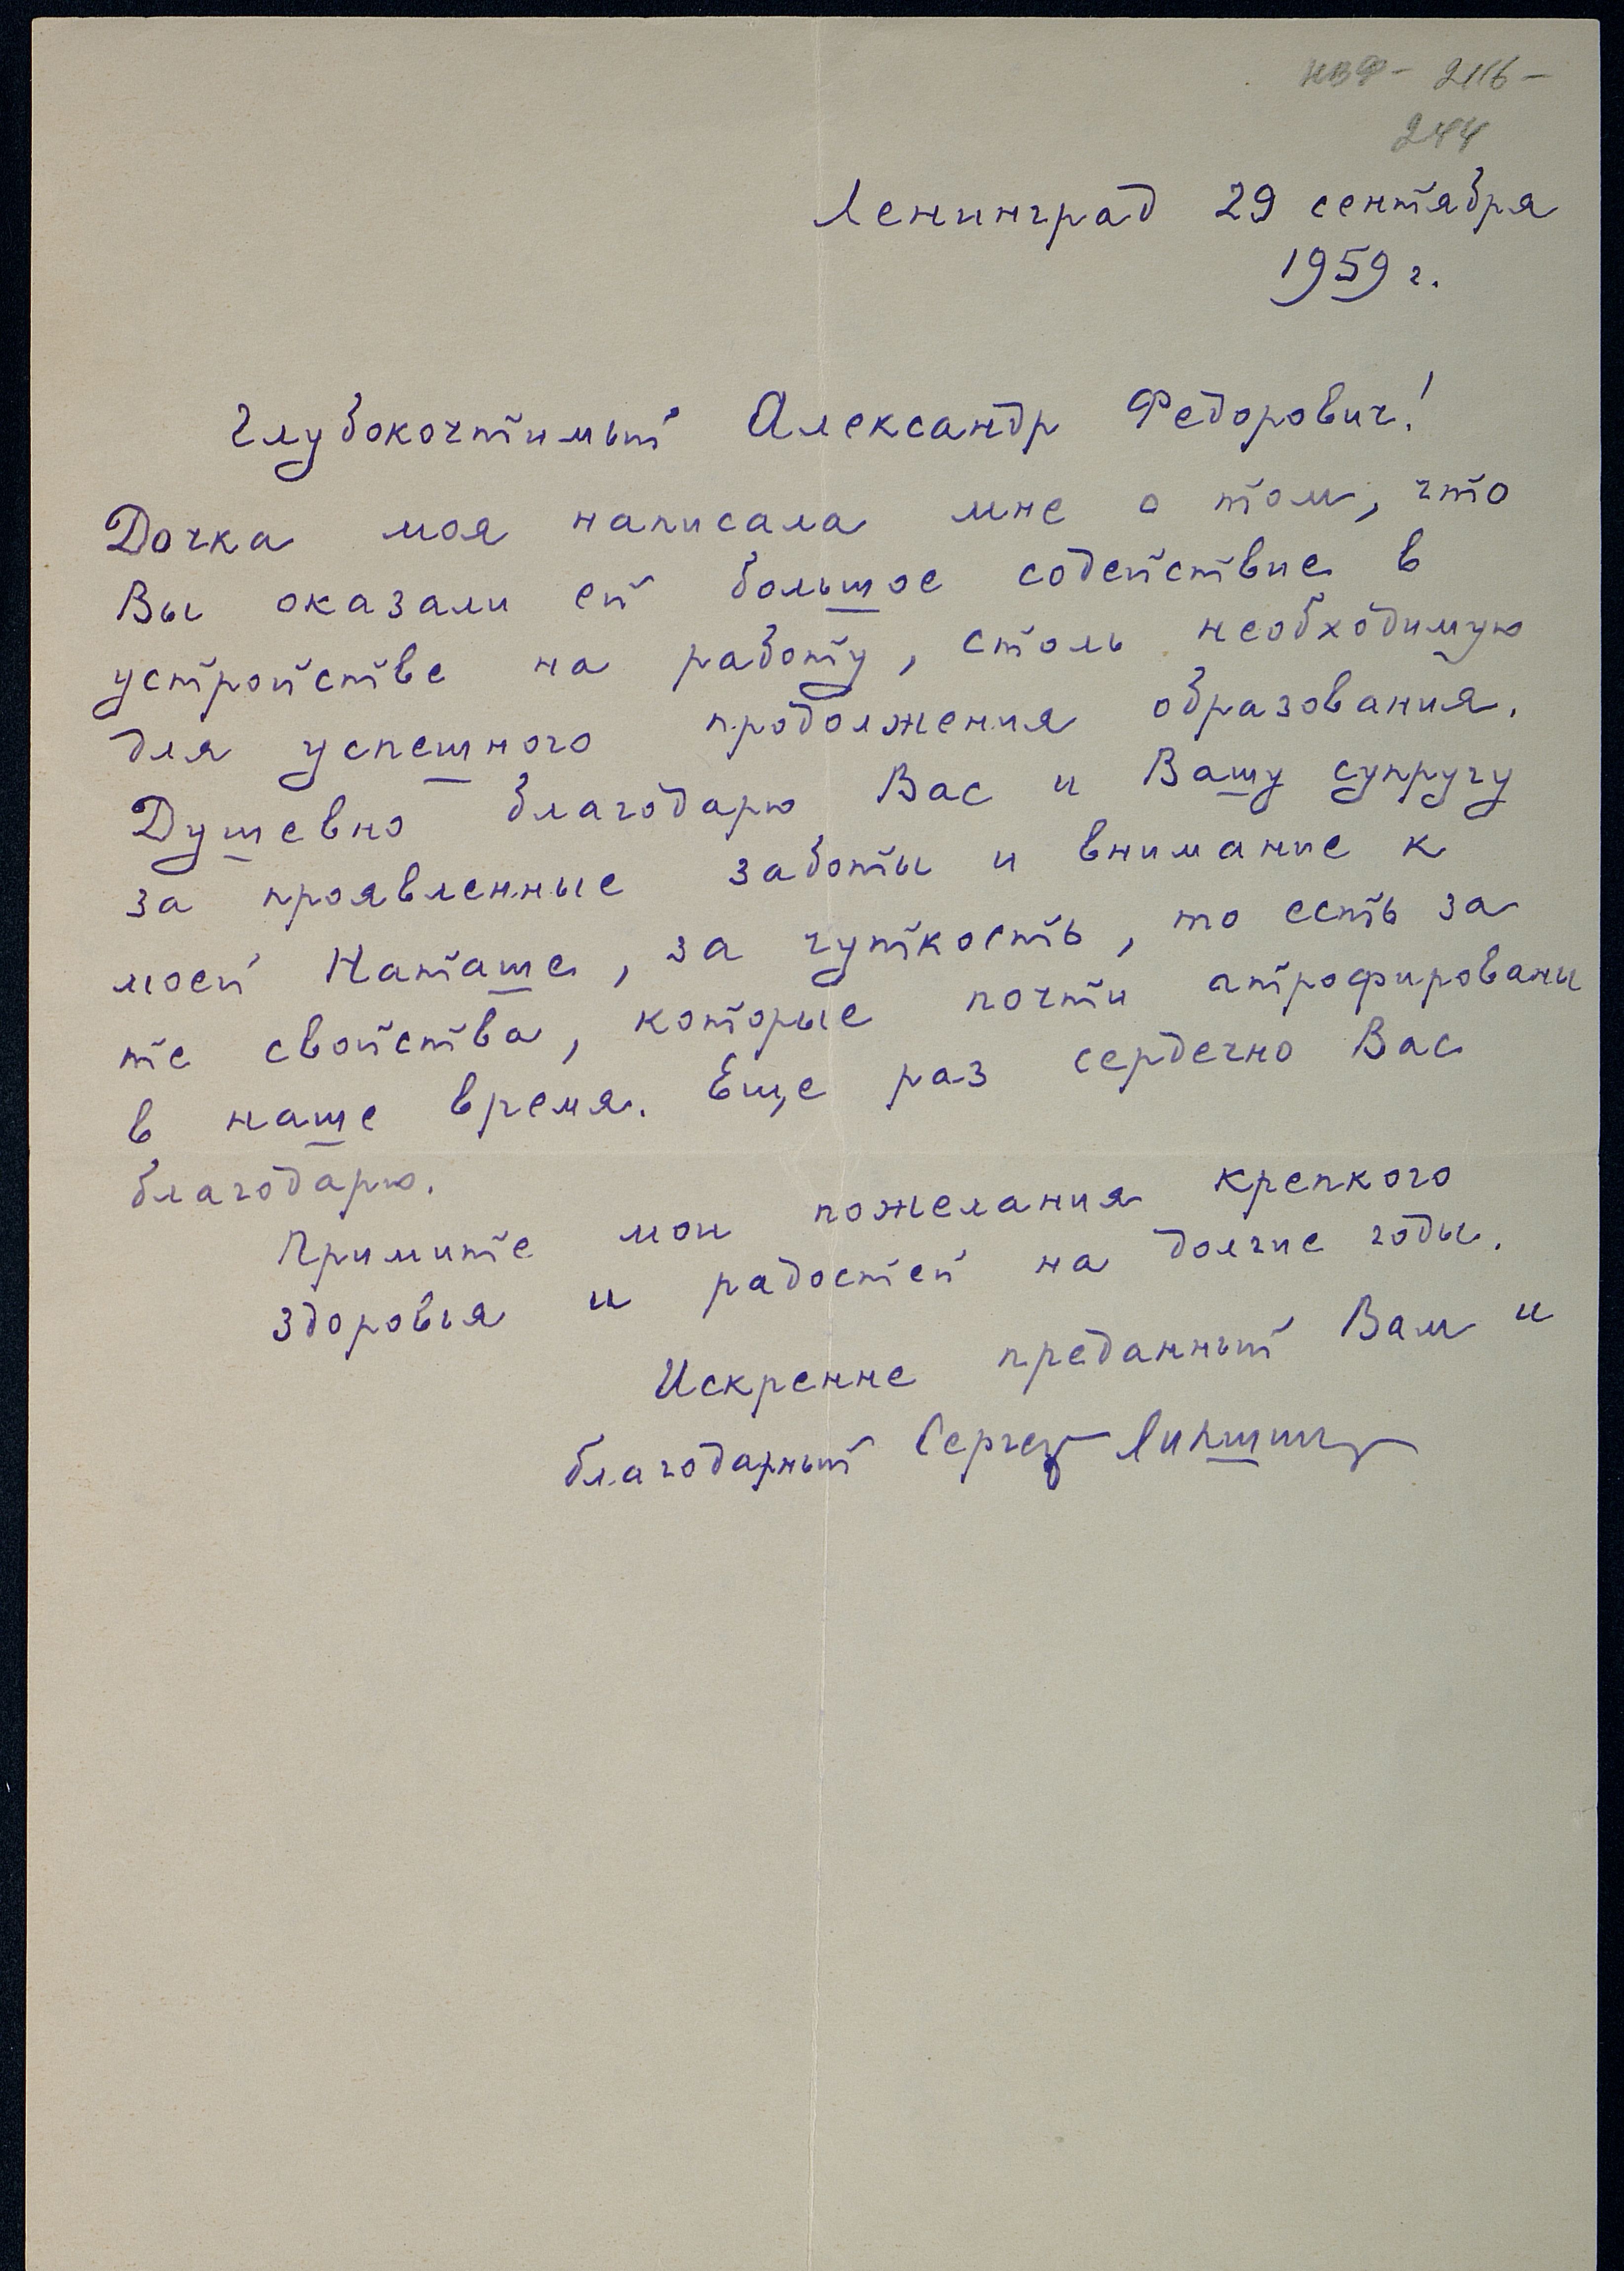 НВФ - 2116 -
244
Ленинград 29 сентября
1959 г.
Глубокочтимый Александр Федорович!
Дочка моя написала мне о том, что
Вы оказали ей большое содействие в
устройстве на работу, столь необходимую
для успешного продолжения образования.
Душевно благодарю Вас и Вашу супругу
за проявленные заботы и внимание к
моей Наташе, за чуткость, то есть за
те свойства, которые почти атрофированы
в наше время. Еще раз сердечно Вас
благодарю.
Примите мои пожелания крепкого
здоровья и радостей на долгие годы.
Искренне преданный Вам и
благодарный Сергей Липшиц